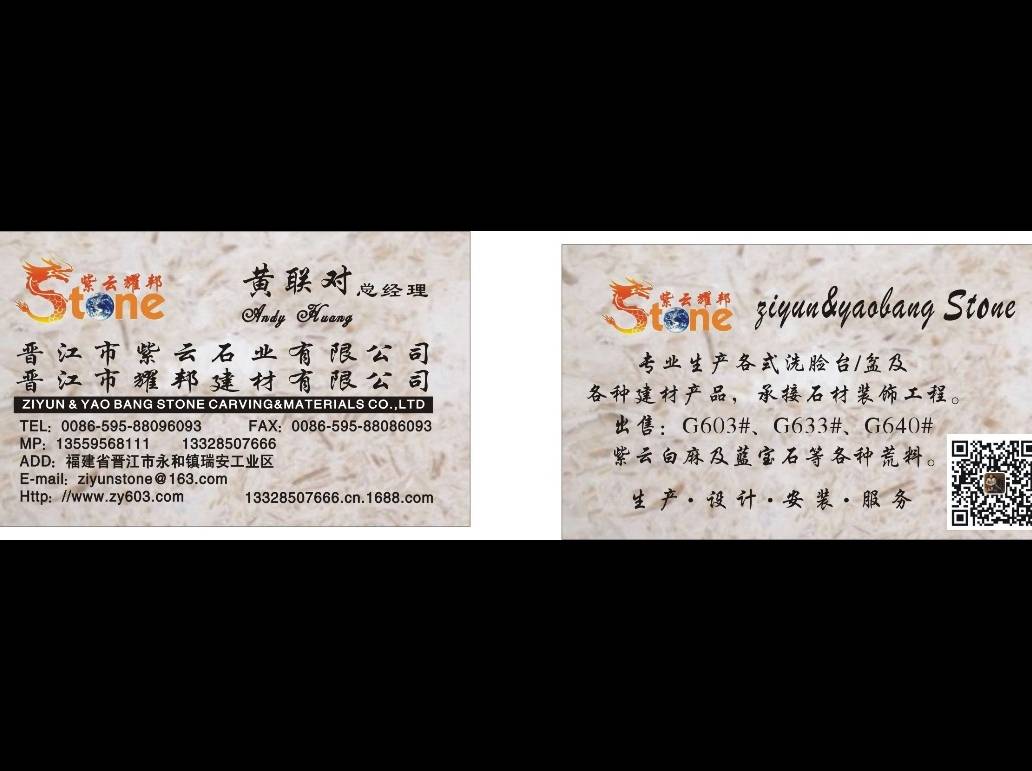 紫云耀邦
Stone
黄联对 总经理
Andy Huang
晋江市紫云石业有限公司
晋江市耀邦建材有限公司
ZIYUN & YAO BANG STONE CARVING&MATERIALS CO.,LTD
TEL: 0086-595-88096093 FAX: 0086-595-88086093
MP: 13559568111 13328507666
ADD: 福建省晋江市永和镇瑞安工业区
E-mail: ziyunstone@163.com
Http: //www.zy603.com 13328507666.cn.1688.com
紫云耀邦
Stone
ziyun&yaobang Stone
专业生产各式洗脸台/盆及
各种建材产品，承接石材装饰工程。
出售：G603#、G633#、G640#
紫云白麻及蓝宝石等各种荒料。
生产·设计·安装·服务